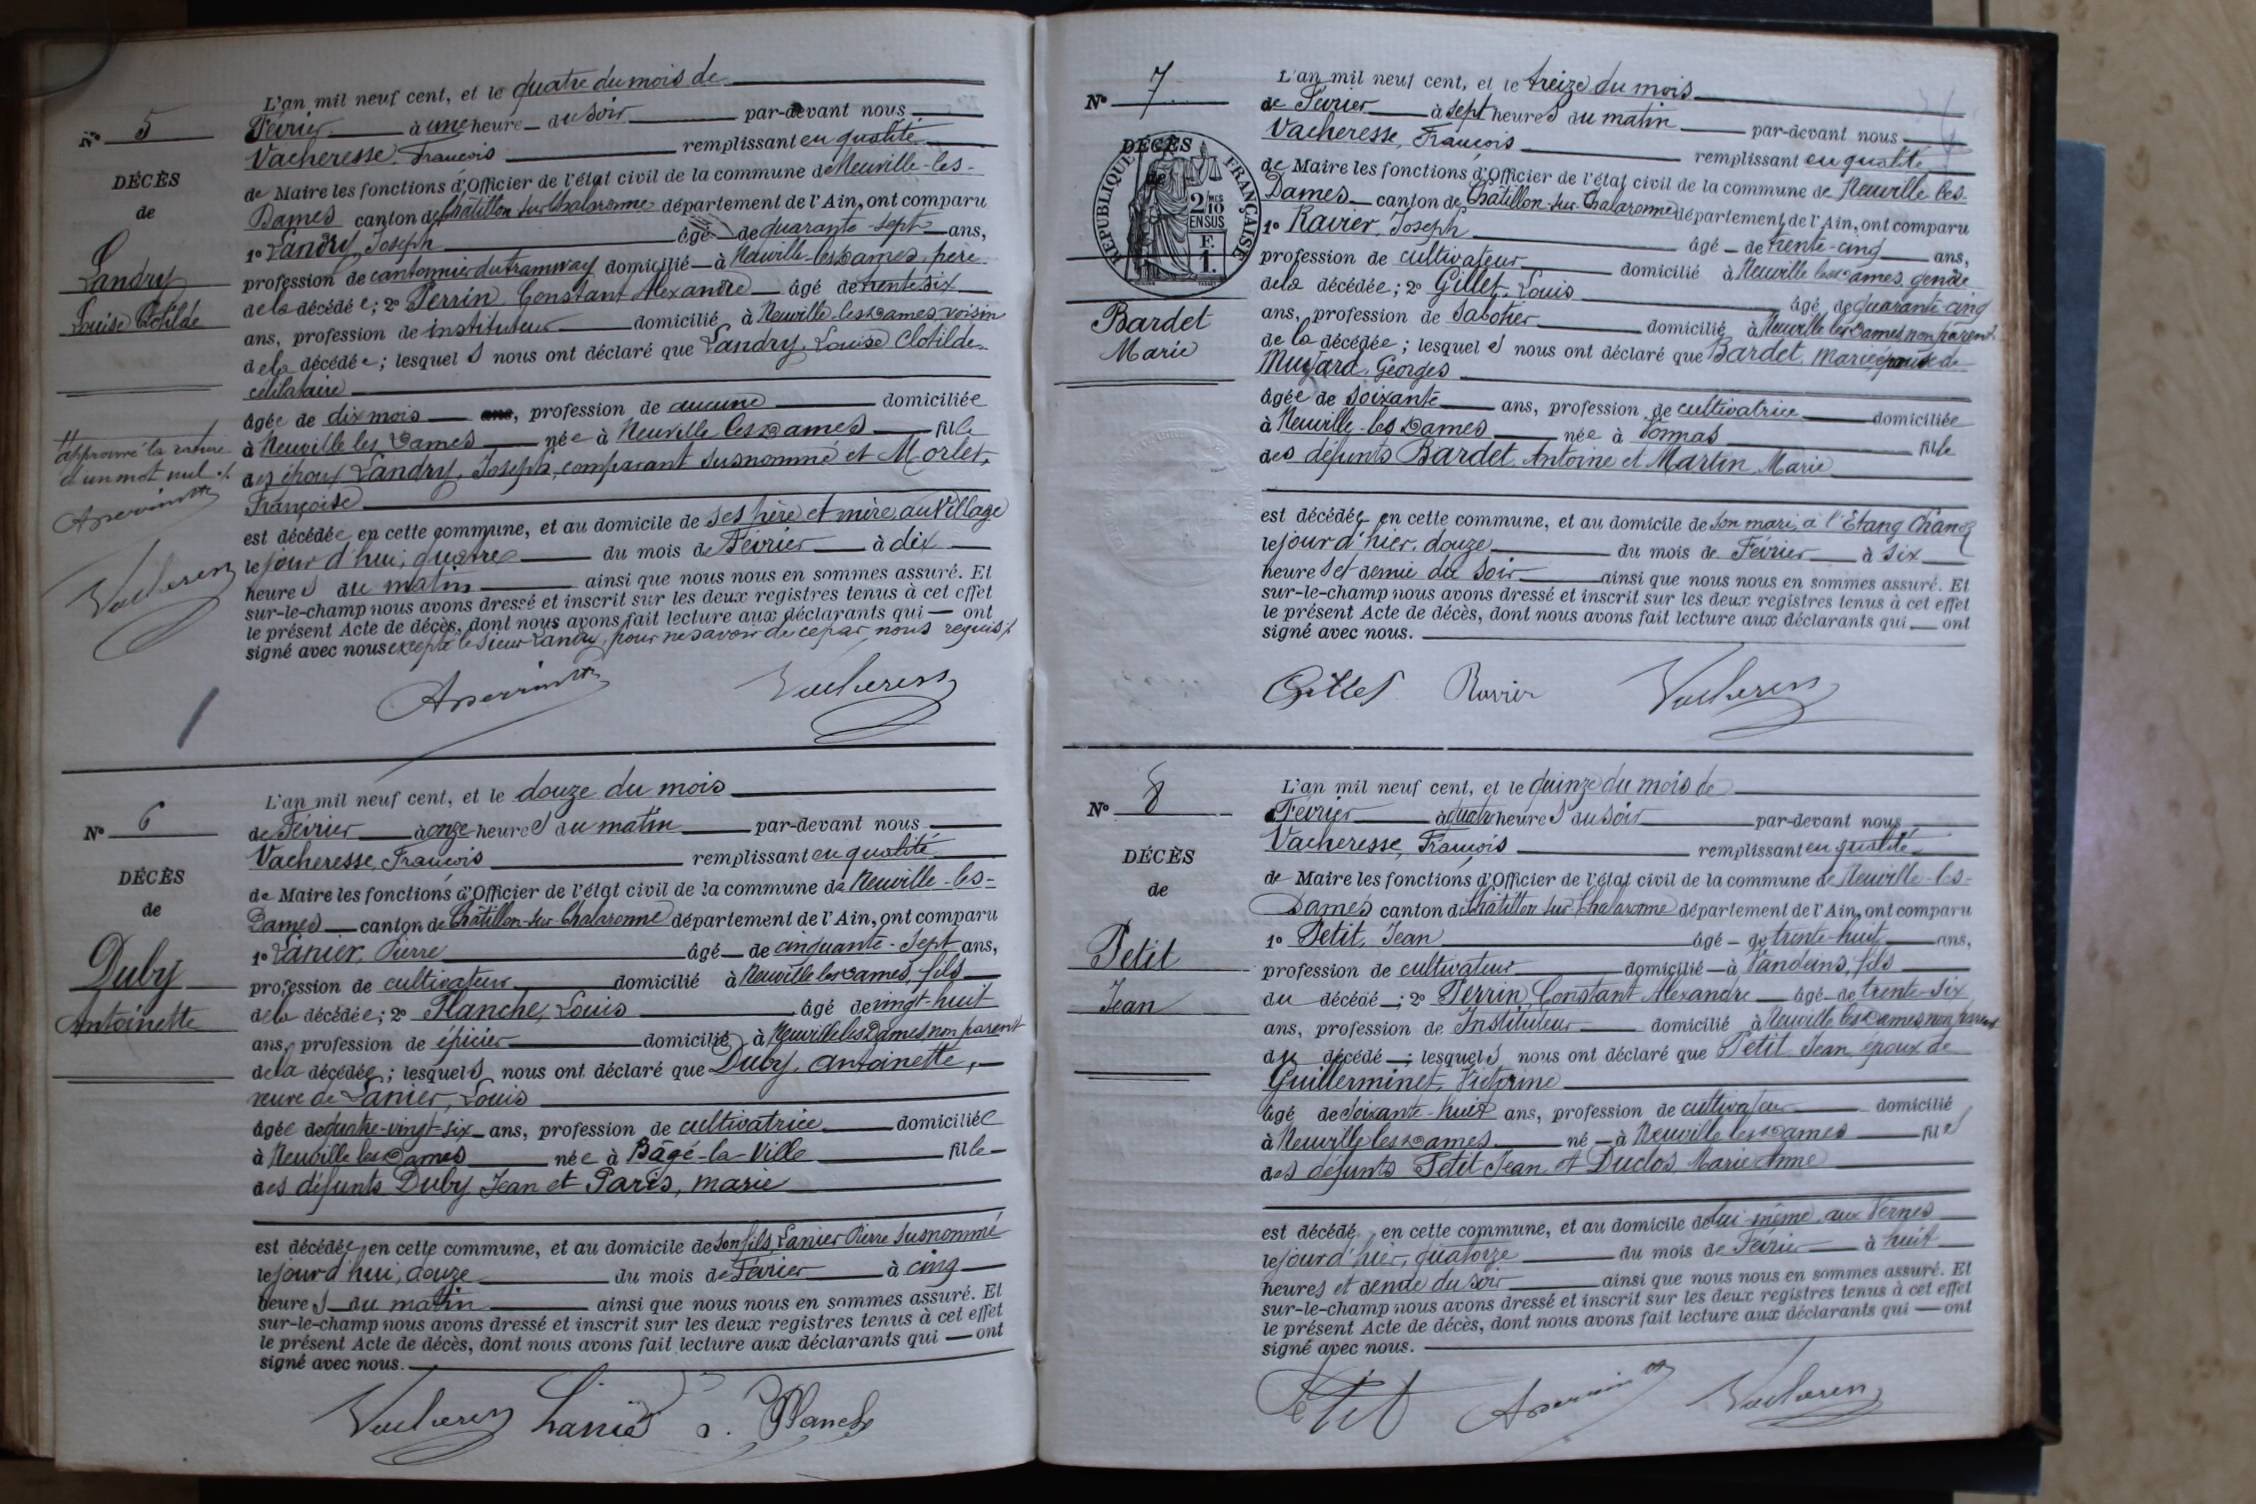 N° 5
DÉCÈS
de
Landry
Louise Clotilde
approuvé la rature
d'un mot nul
L'an mil neuf cent, et le quatre du mois de
Février à une heure du soir par-devant nous
Vacheresse, François remplissant en qualité
de Maire les fonctions d'Officier de l'état civil de la commune de Neuville-les-
Dames canton de Châtillon sur Chalaronne département de l'Ain, ont comparu
1° Landry Joseph âgé de quarante-sept ans,
profession de cantonnier du tramway domicilié à Neuville-les-Dames, père
de la décédée; 2° Perrin, Constant Alexandre âgé de trente six
ans, profession de instituteur domicilié à Neuville-les-Dames, voisin
de la décédée; lesquels nous ont déclaré que Landry, Louise Clotilde
célibataire
âgée de dix mois ans, profession de aucune domiciliée
à Neuville les Dames née à Neuville les Dames fille
des époux Landry, Joseph, comparant susnommé et Morlet,
Françoise
est décédée en cette commune, et au domicile de ses père et mère, au Village
le jour d'hui, quatre du mois de Février à dix
heures du matin ainsi que nous nous en sommes assuré. Et
sur-le-champ nous avons dressé et inscrit sur les deux registres tenus à cet effet
le présent Acte de décès, dont nous avons fait lecture aux déclarants qui ont
signé avec nous excepté le sieur Landry, pour ne savoir de ce par nous requis
Vacheresse
N° 6
DÉCÈS
de
Duby
Antoinette
L'an mil neuf cent, et le douze du mois
de Février à onze heures du matin par-devant nous
Vacheresse, François remplissant en qualité
de Maire les fonctions d'Officier de l'état civil de la commune de Neuville-les-
Dames canton de Châtillon-sur-Chalaronne département de l'Ain, ont comparu
1° Lanier, Pierre âgé de cinquante-sept ans,
profession de cultivateur domicilié à Neuville les Dames, fils
de la décédée; 2° Planche, Louis âgé de vingt-huit
ans, profession de épicier domicilié à Neuville les Dames non parent
de la décédée; lesquels nous ont déclaré que Duby, Antoinette,
veuve de Lanier, Louis
âgée de quatre-vingt-six ans, profession de cultivatrice domiciliée
à Neuville les Dames née à Bâgé-la-Ville fille
des défunts Duby Jean et Paris, Marie
est décédée en cette commune, et au domicile de son fils, Lanier Pierre susnommé
le jour d'hui, douze du mois de Février à cinq
heures du matin ainsi que nous nous en sommes assuré. Et
sur-le-champ nous avons dressé et inscrit sur les deux registres tenus à cet effet
le présent Acte de décès, dont nous avons fait lecture aux déclarants qui ont
signé avec nous.
Vacheresse Lanier L. Planche
N° 7
DÉCÈS
de
RÉPUBLIQUE FRANÇAISE
2/10 MES
EN SUS
F.
1.
Bardet
Marie
L'an mil neuf cent, et le treize du mois
de Février à sept heures du matin par-devant nous
Vacheresse, François remplissant en qualité
de Maire les fonctions d'Officier de l'état civil de la commune de Neuville les-
Dames canton de Châtillon-sur-Chalaronne département de l'Ain, ont comparu
1° Ravier, Joseph âgé de trente-cinq ans,
profession de cultivateur domicilié à Neuville les Dames, gendre
de la décédée; 2° Gillet, Louis âgé de quarante-cinq
ans, profession de sabotier domicilié à Neuville les Dames, non parent
de la décédée; lesquels nous ont déclaré que Bardet, Marie épouse de
Georges
âgée de soixante ans, profession de cultivatrice domiciliée
à Neuville-les-Dames née à fille
des défunts Bardet Antoine et Martin Marie
est décédée en cette commune, et au domicile de son mari, à l'Etang
le jour d'hier, douze du mois de Février à six
heures et demie du soir ainsi que nous nous en sommes assuré. Et
sur-le-champ nous avons dressé et inscrit sur les deux registres tenus à cet effet
le présent Acte de décès, dont nous avons fait lecture aux déclarants qui ont
signé avec nous.
Gillet Ravier Vacheresse
N° 8
DÉCÈS
de
Petit
Jean
L'an mil neuf cent, et le quinze du mois de
Février à quatre heures du soir par-devant nous
Vacheresse, François remplissant en qualité
de Maire les fonctions d'Officier de l'état civil de la commune de Neuville-les-
Dames canton de Châtillon sur Chalaronne département de l'Ain, ont comparu
1° Petit, Jean âgé de trente-huit ans,
profession de cultivateur domicilié à Vandeins, fils
du décédé; 2° Perrin, Constant Alexandre âgé de trente-six
ans, profession de Instituteur domicilié à Neuville les Dames non parent
du décédé; lesquels nous ont déclaré que Petit Jean époux de
Guillerminet, Victorine
âgé de soixante-huit ans, profession de cultivateur domicilié
à Neuville les Dames né à Neuville les Dames fils
des défunts Petit Jean et Duclos Marie Anne
est décédé en cette commune, et au domicile de lui-même, aux Vernes
le jour d'hier, quatorze du mois de Février à huit
heures et demie du soir ainsi que nous nous en sommes assuré. Et
sur-le-champ nous avons dressé et inscrit sur les deux registres tenus à cet effet
le présent Acte de décès, dont nous avons fait lecture aux déclarants qui ont
signé avec nous.
Petit Vacheresse